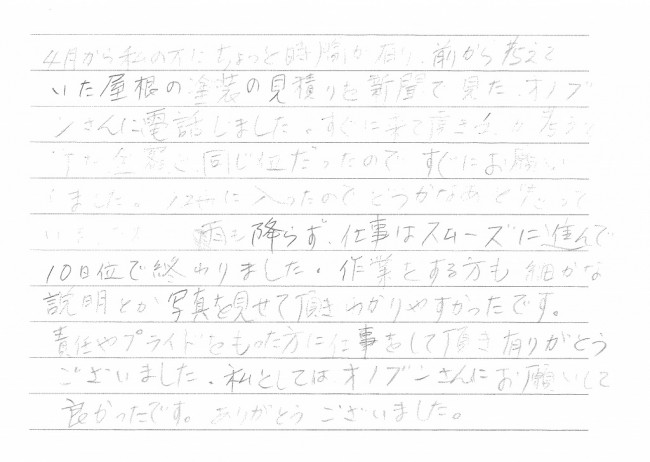 4月から私の方にちょっと時間が有り、前から考えて
いた屋根の塗装の見積りを新聞で見た、オノブ
ンさんに電話しました。すぐに来て頂き私が考えて
いた金額と同じ位だったので すぐにお願い
しました。12月に入ったのでどうかなあと思って
いましたが 雨も降らず、仕事はスムーズに進んで
10日位で終わりました。作業をする方も細かな
説明とか写真を見せて頂きわかりやすかったです。
責任やプライドをもった方に仕事をして頂き有りがとう
ございました。私としてはオノブンさんにお願いして
良かったです。ありがとうございました。